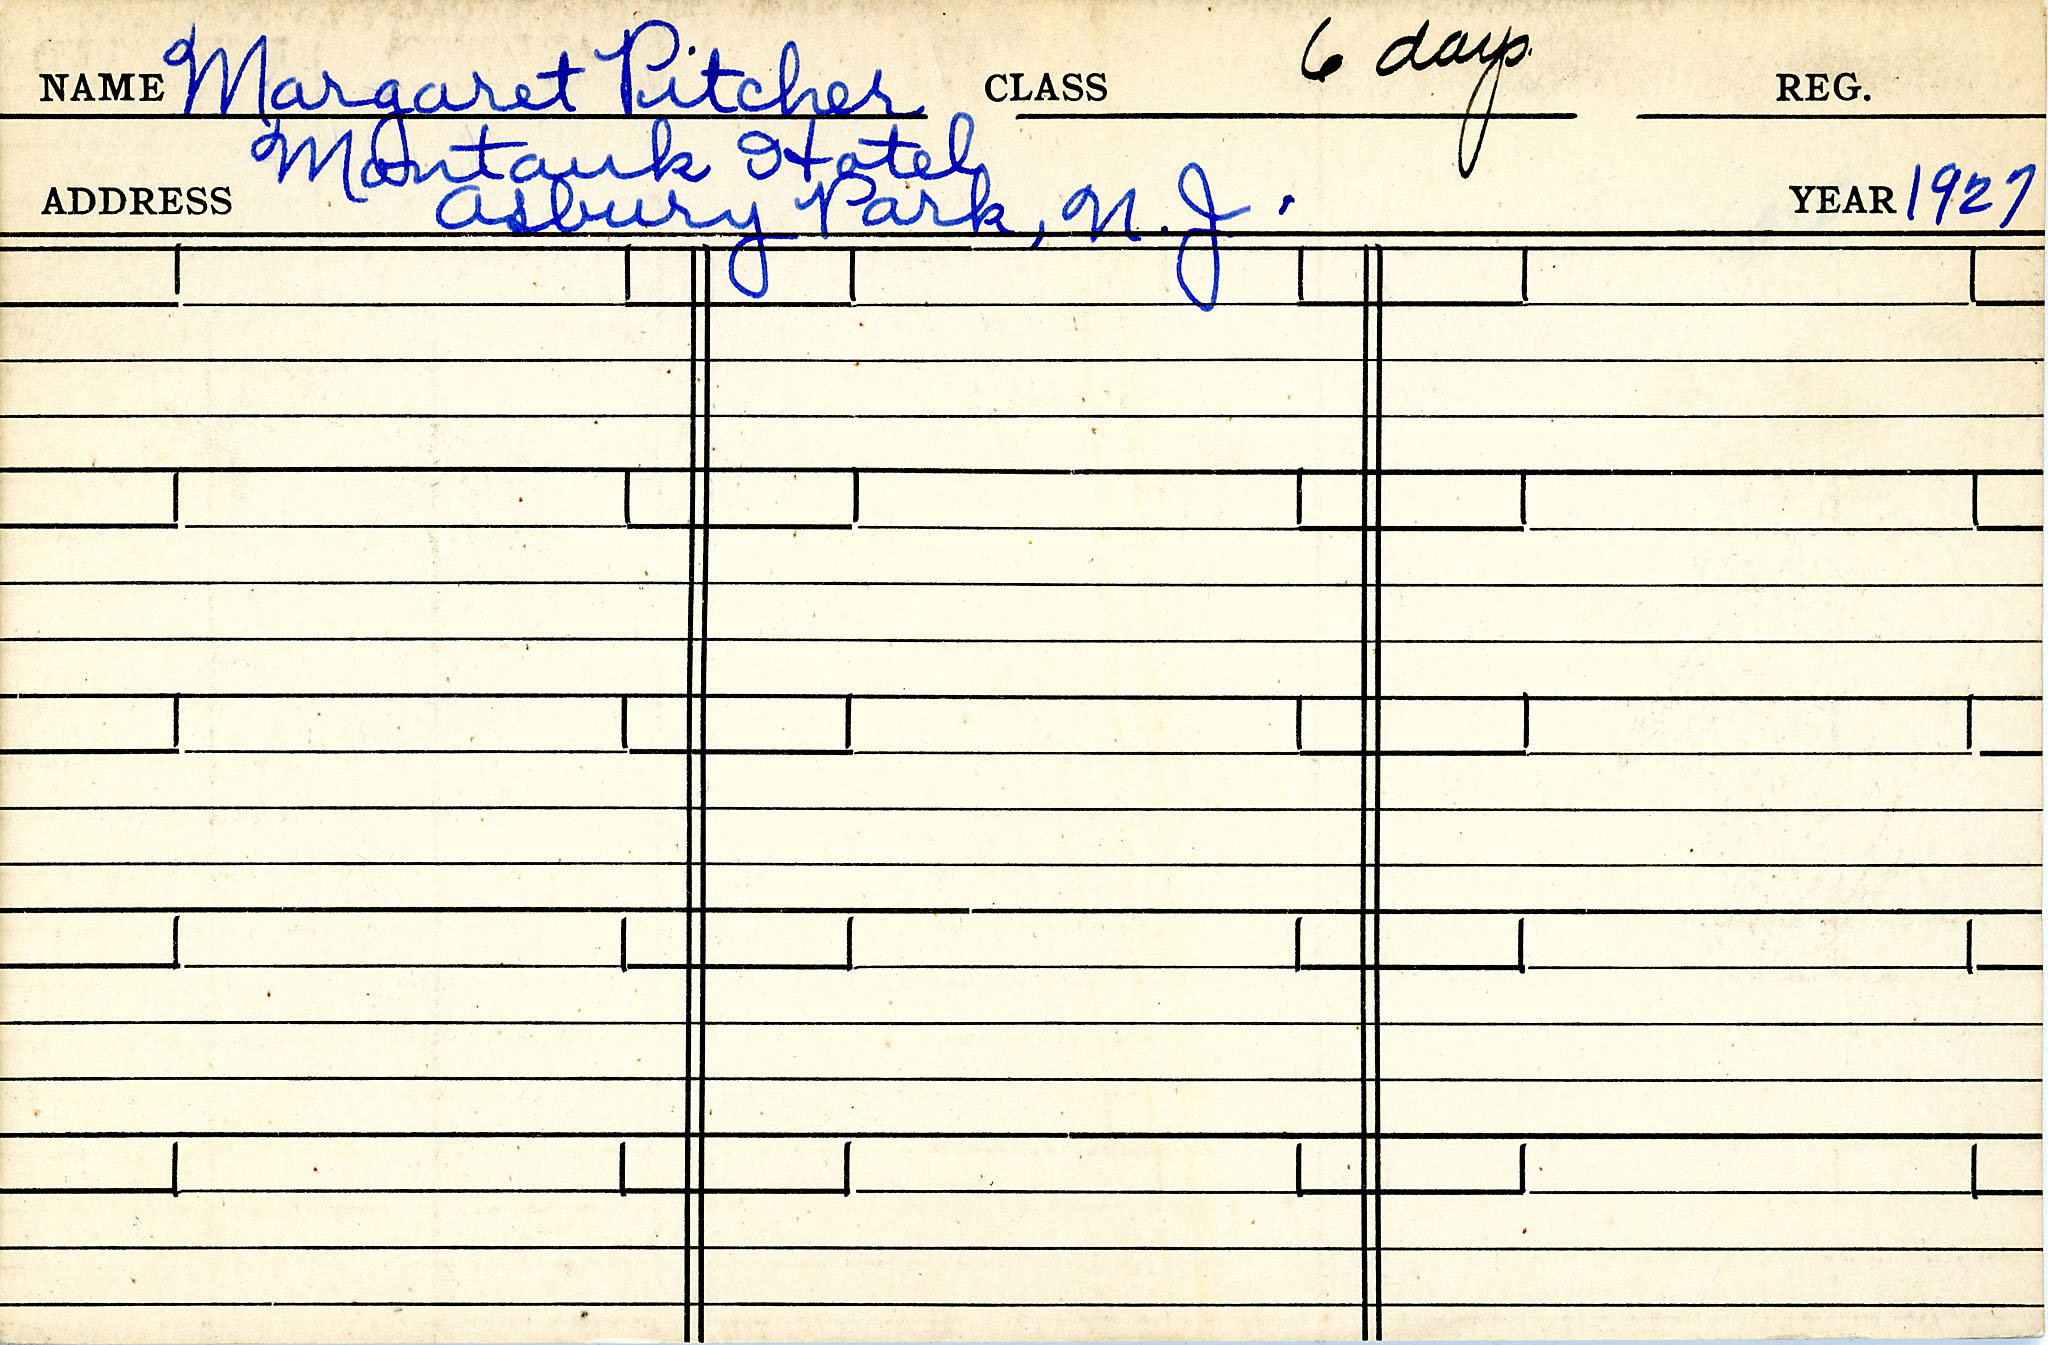 NAME Margaret Pitcher CLASS 6 days REG.
Montauk Hotel
ADDRESS Asbury Park, N.J. YEAR 1927